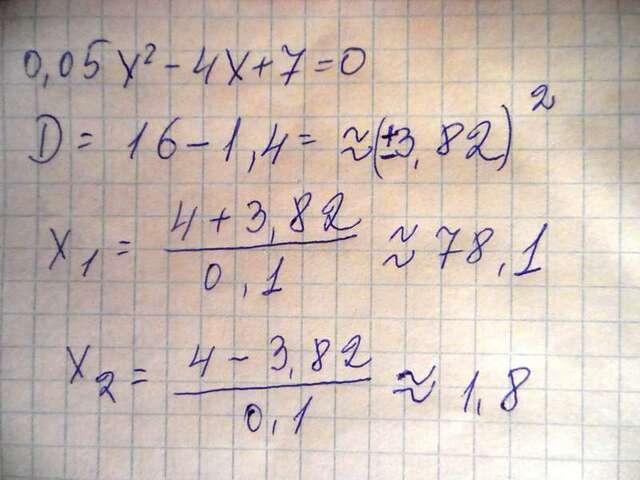 0,05x² - 4x + 7 = 0
D = 16 - 1,4 = ≈ (±3,82)²
x₁ = (4 + 3,82) / 0,1 ≈ 78,1
x₂ = (4 - 3,82) / 0,1 ≈ 1,8